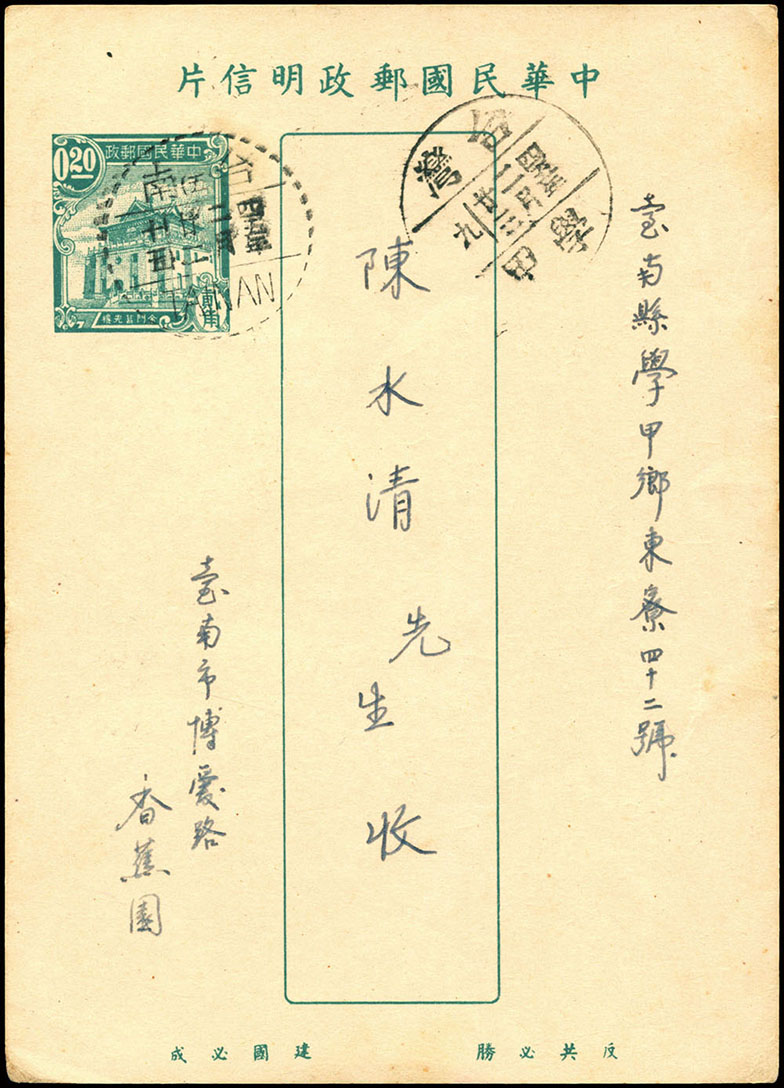 中華民國郵政明信片
中華民國郵政
0.20
貳角
金門莒光樓
台南
TAINAN
台灣
學甲
臺南縣學甲鄉東寮四十二號
陳水清先生收
臺南市博愛路
香蕉園
反共必勝
建國必成